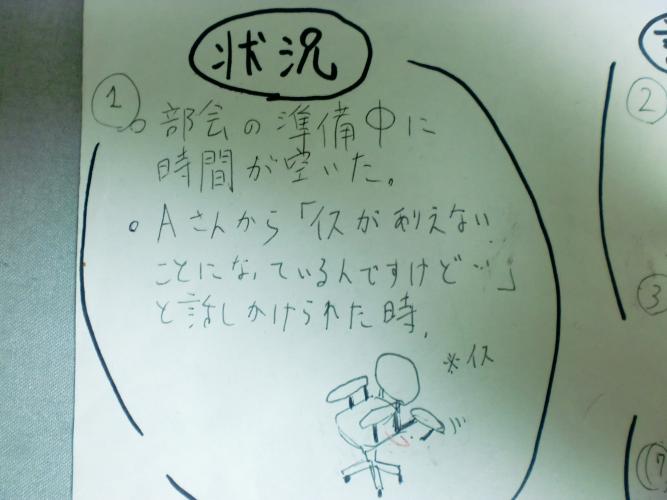 状況
①
。部会の準備中に
時間が空いた。
。Aさんから「イスがありえない
ことになっているんですけど…」
と話しかけられた時,
※イス
②
③
⑦